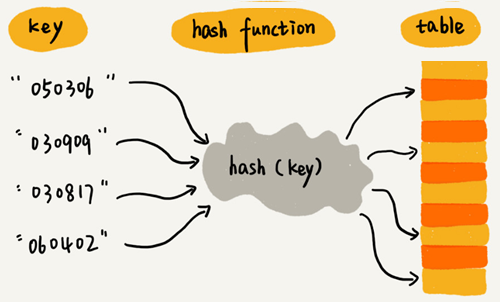 key
hash function
table
"050306"
"030909"
"030817"
"060402"
hash (key)